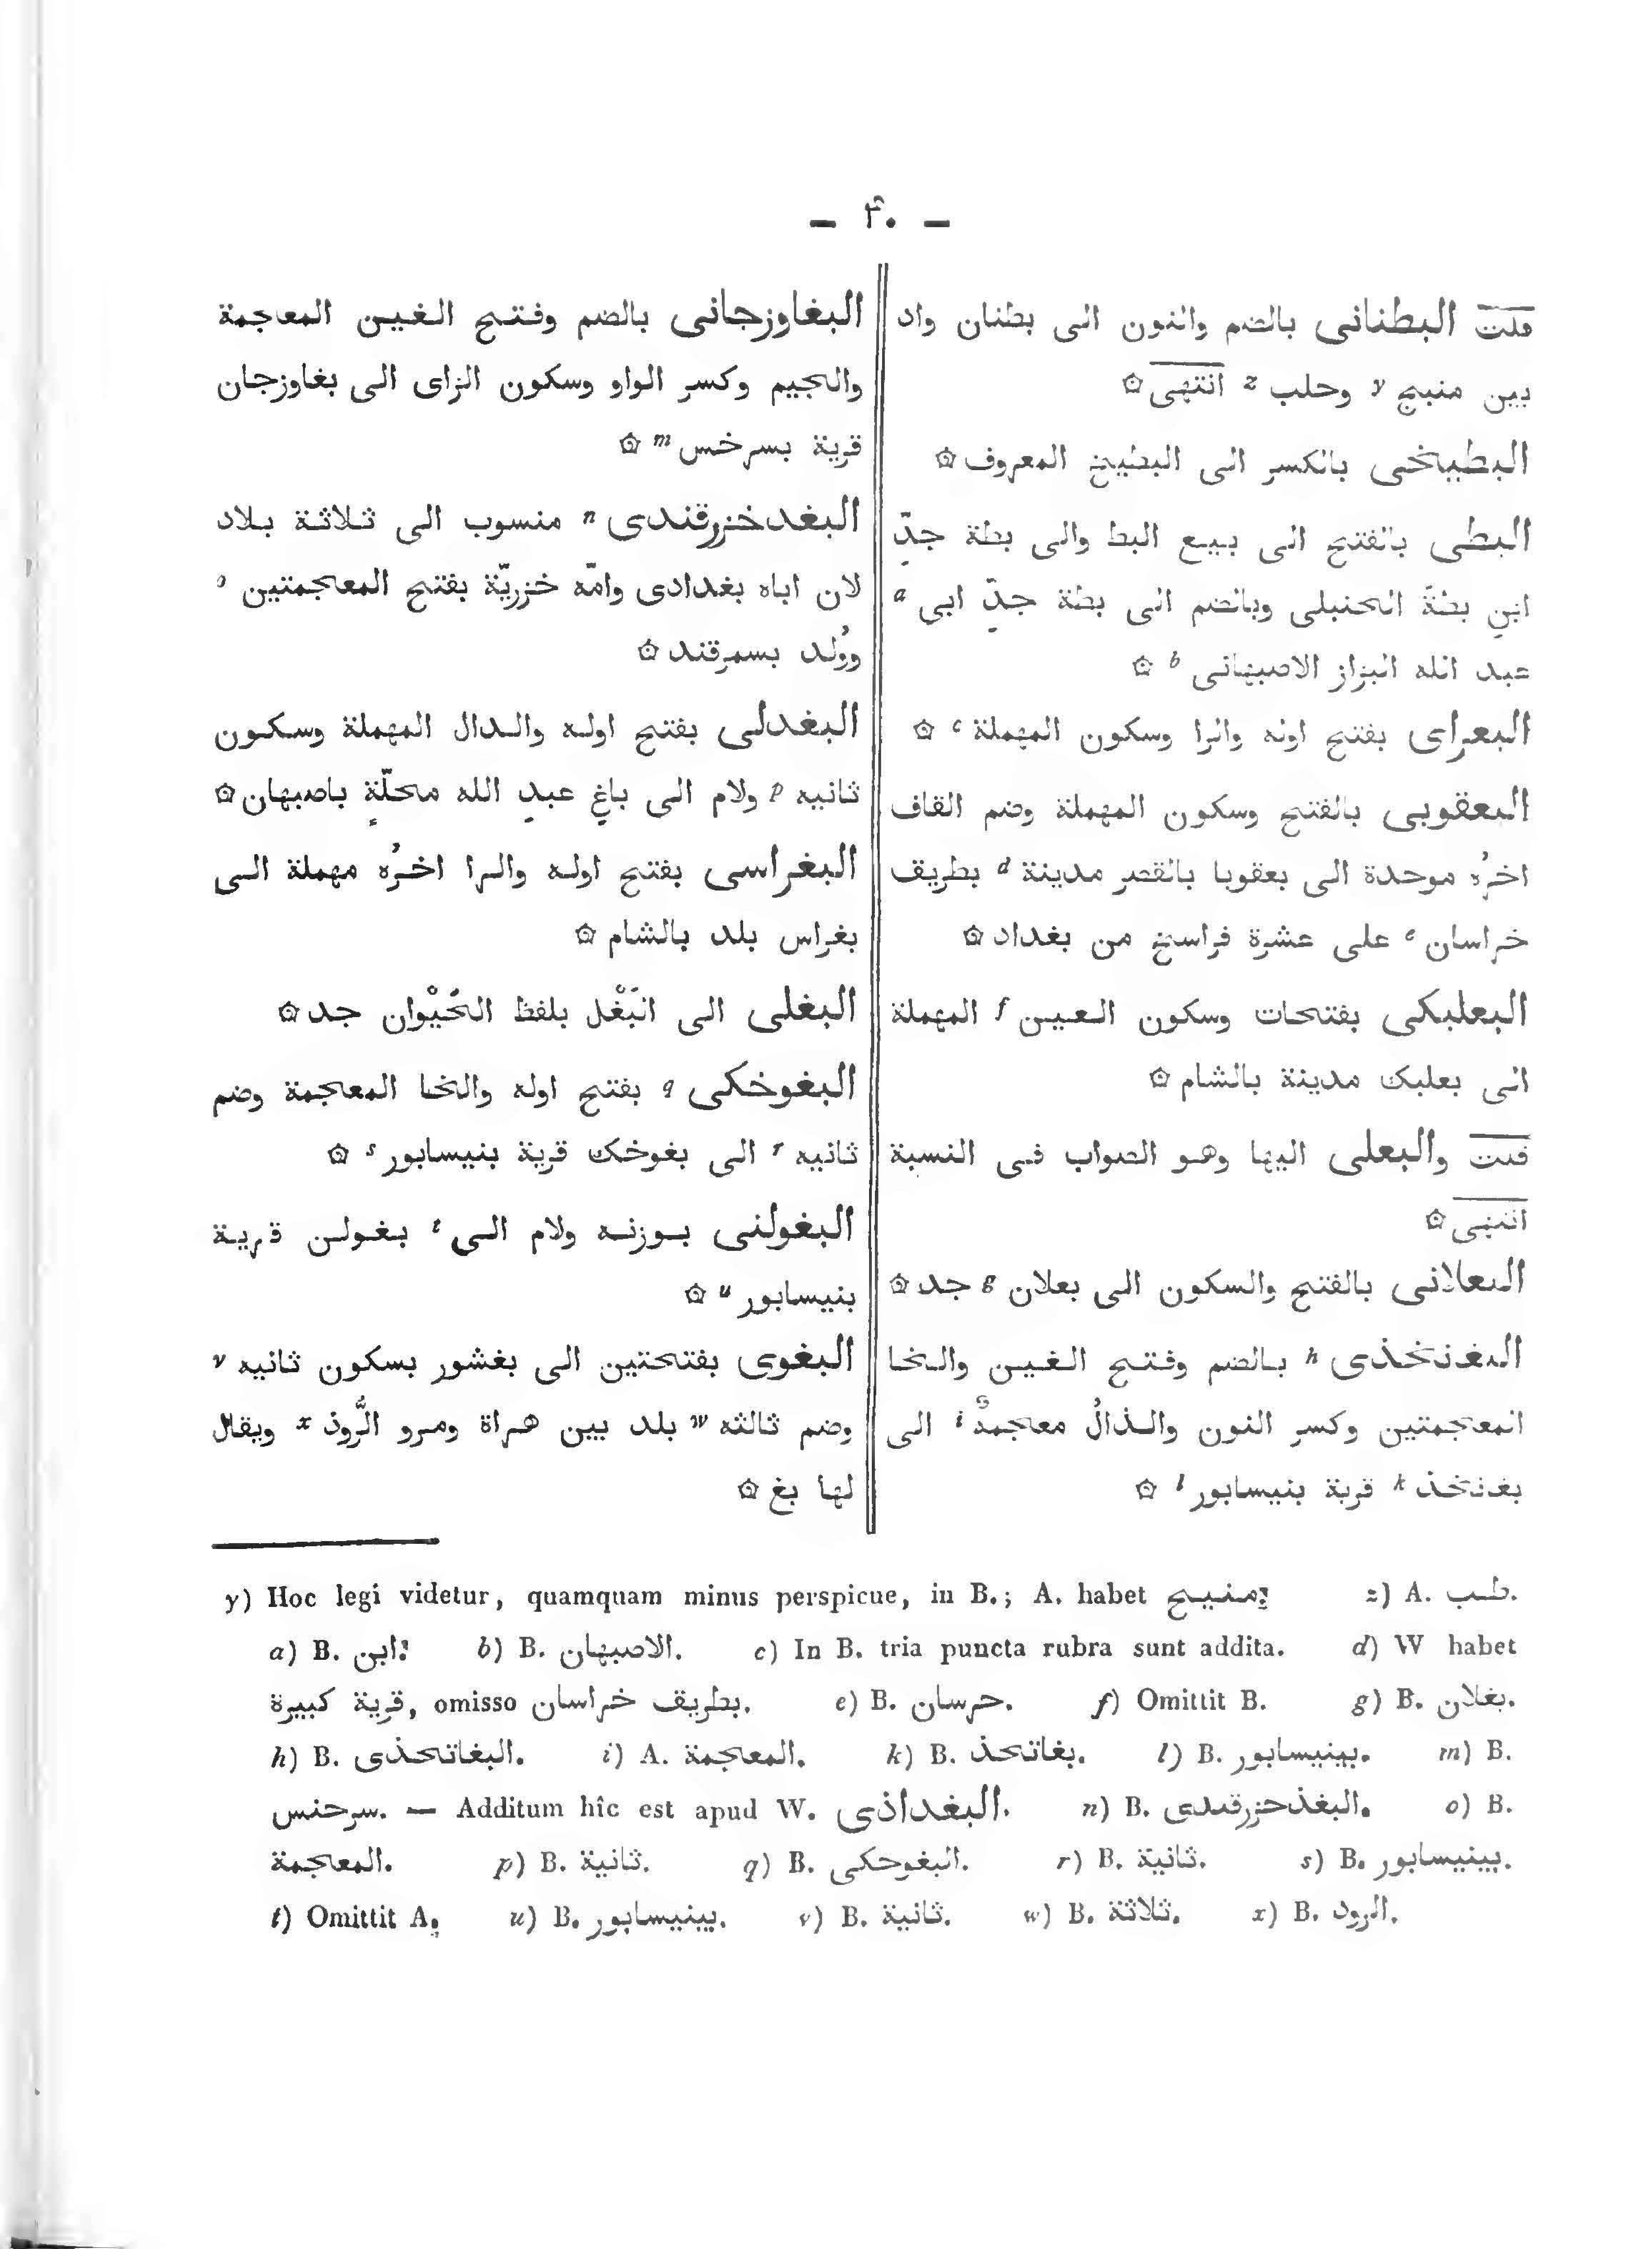 — ۴۰ —
قلت البطنانى بالضم والنون الى بطنان واد
بين منبج y وحلب z انتهى ۞
البطيخى بالكسر الى البطيخ المعروف ۞
البطى بالفتح الى بيع البط والى بطة جدِّ
ابنِ بطةَ الحنبلى وبالضم الى بطة جدِّ ابى a
عبد الله البزاز الاصبهانى b ۞
البعراى بفتح اوله والرا وسكون المهملة c ۞
البعقوبى بالفتح وسكون المهملة وضم القاف
اخرُه موحدة الى بعقوبا بالقصر مدينة d بطريف
خراسان e على عشرة فراسخ من بغداد ۞
البعلبكى بفتحات وسكون العين f المهملة
الى بعلبك مدينة بالشام ۞
قلت والبعلى اليها وهو الصواب فى النسبة
انتهى ۞
البعلانى بالفتح والسكون الى بعلان g جد ۞
البغانخذى h بالضم وفتح الغين والخا
المعجمتين وكسر النون والذالُ معاجمةٌ i الى
بغانخذ k قرية بنيسابور l ۞
البغاوزجانى بالضم وفتح الغين المعاجمة
والجيم وكسر الواو وسكون الزاى الى بغاوزجان
قرية بسرخس m ۞
البغدخزرقندى n منسوب الى ثلاثة بلاد
لان اباه بغدادى وامّه خزريّة بفتح المعجمتين o
ووُلد بسمرقند ۞
البغدلى بفتح اوله والدال المهملة وسكون
ثانيه p ولام الى باغِ عبدِ الله محلّةٍ باصبهان ۞
البغراسى بفتح اوله والرا اخرُه مهملة الى
بغراس بلد بالشام ۞
البغلى الى البَغْل بلفظ الحَيْوان جد ۞
البغوخكى q بفتح اوله والخا المعاجمة وضم
ثانيه r الى بغوخك قرية بنيسابور s ۞
البغولنى بوزنه ولام الى t بغولن قرية
بنيسابور u ۞
البغوى بفتحتين الى بغشور بسكون ثانيه v
وضم ثالثه w بلد بين هراة ومرو الرُّوذ x ويقال
لها بغ ۞
y) Hoc legi videtur, quamquam minus perspicue, in B.; A. habet منيح; z) A. طب.
a) B. ابن; b) B. الاصبهان. c) In B. tria puncta rubra sunt addita. d) W habet
قرية كبيرة, omisso بطريف خراسان. e) B. حرسان. f) Omittit B. g) B. بغلان.
h) B. البغاتحذى. i) A. المعاجمة. k) B. بغاتحذ. l) B. بينيسابور. m) B.
سرحنس. — Additum hîc est apud W. البغداذى. n) B. البغذحزرقىدى. o) B.
المعاجمة. p) B. ثانية. q) B. البغوحكى. r) B. ثانية. s) B. بينيسابور.
t) Omittit A. u) B. بينيسابور. v) B. ثانية. w) B. ثلاثة. x) B. الرود.